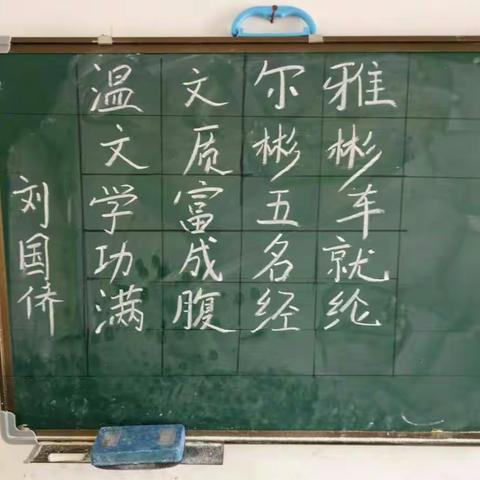 温文尔雅
文质彬彬
学富五车
功成名就
满腹经纶
刘国侨